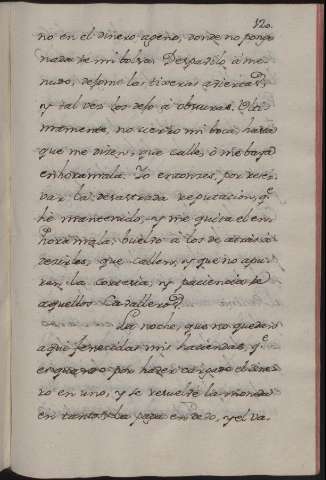 120.
no en el dinero ageno, donde no pongo
nada de mi bolsa. Despavilo à me-
nudo, dejome las tixeras avierta.s
y tal vez los dejo à obscuras. Ulti-
mamente, no cierro mi boca, hasta
que me dicen, que calle, ò me vaya
enhoramala. Yo entonces, por reser-
var la desastrada reputacion, q.e
hè mantenido, y me quita el en-
horamala, buelvo à los de atras à
decirles, que callen, y que no apu-
ren la cortesia, y paciencia de
aquellos Cavalleros.
La noche, que no quedan
aqui fenecidas mis haciendas, q.e
es quando por haver cargado el dine-
ro en uno, y se resuelve la moneda
en tantos y la paga en dedo, y el va-